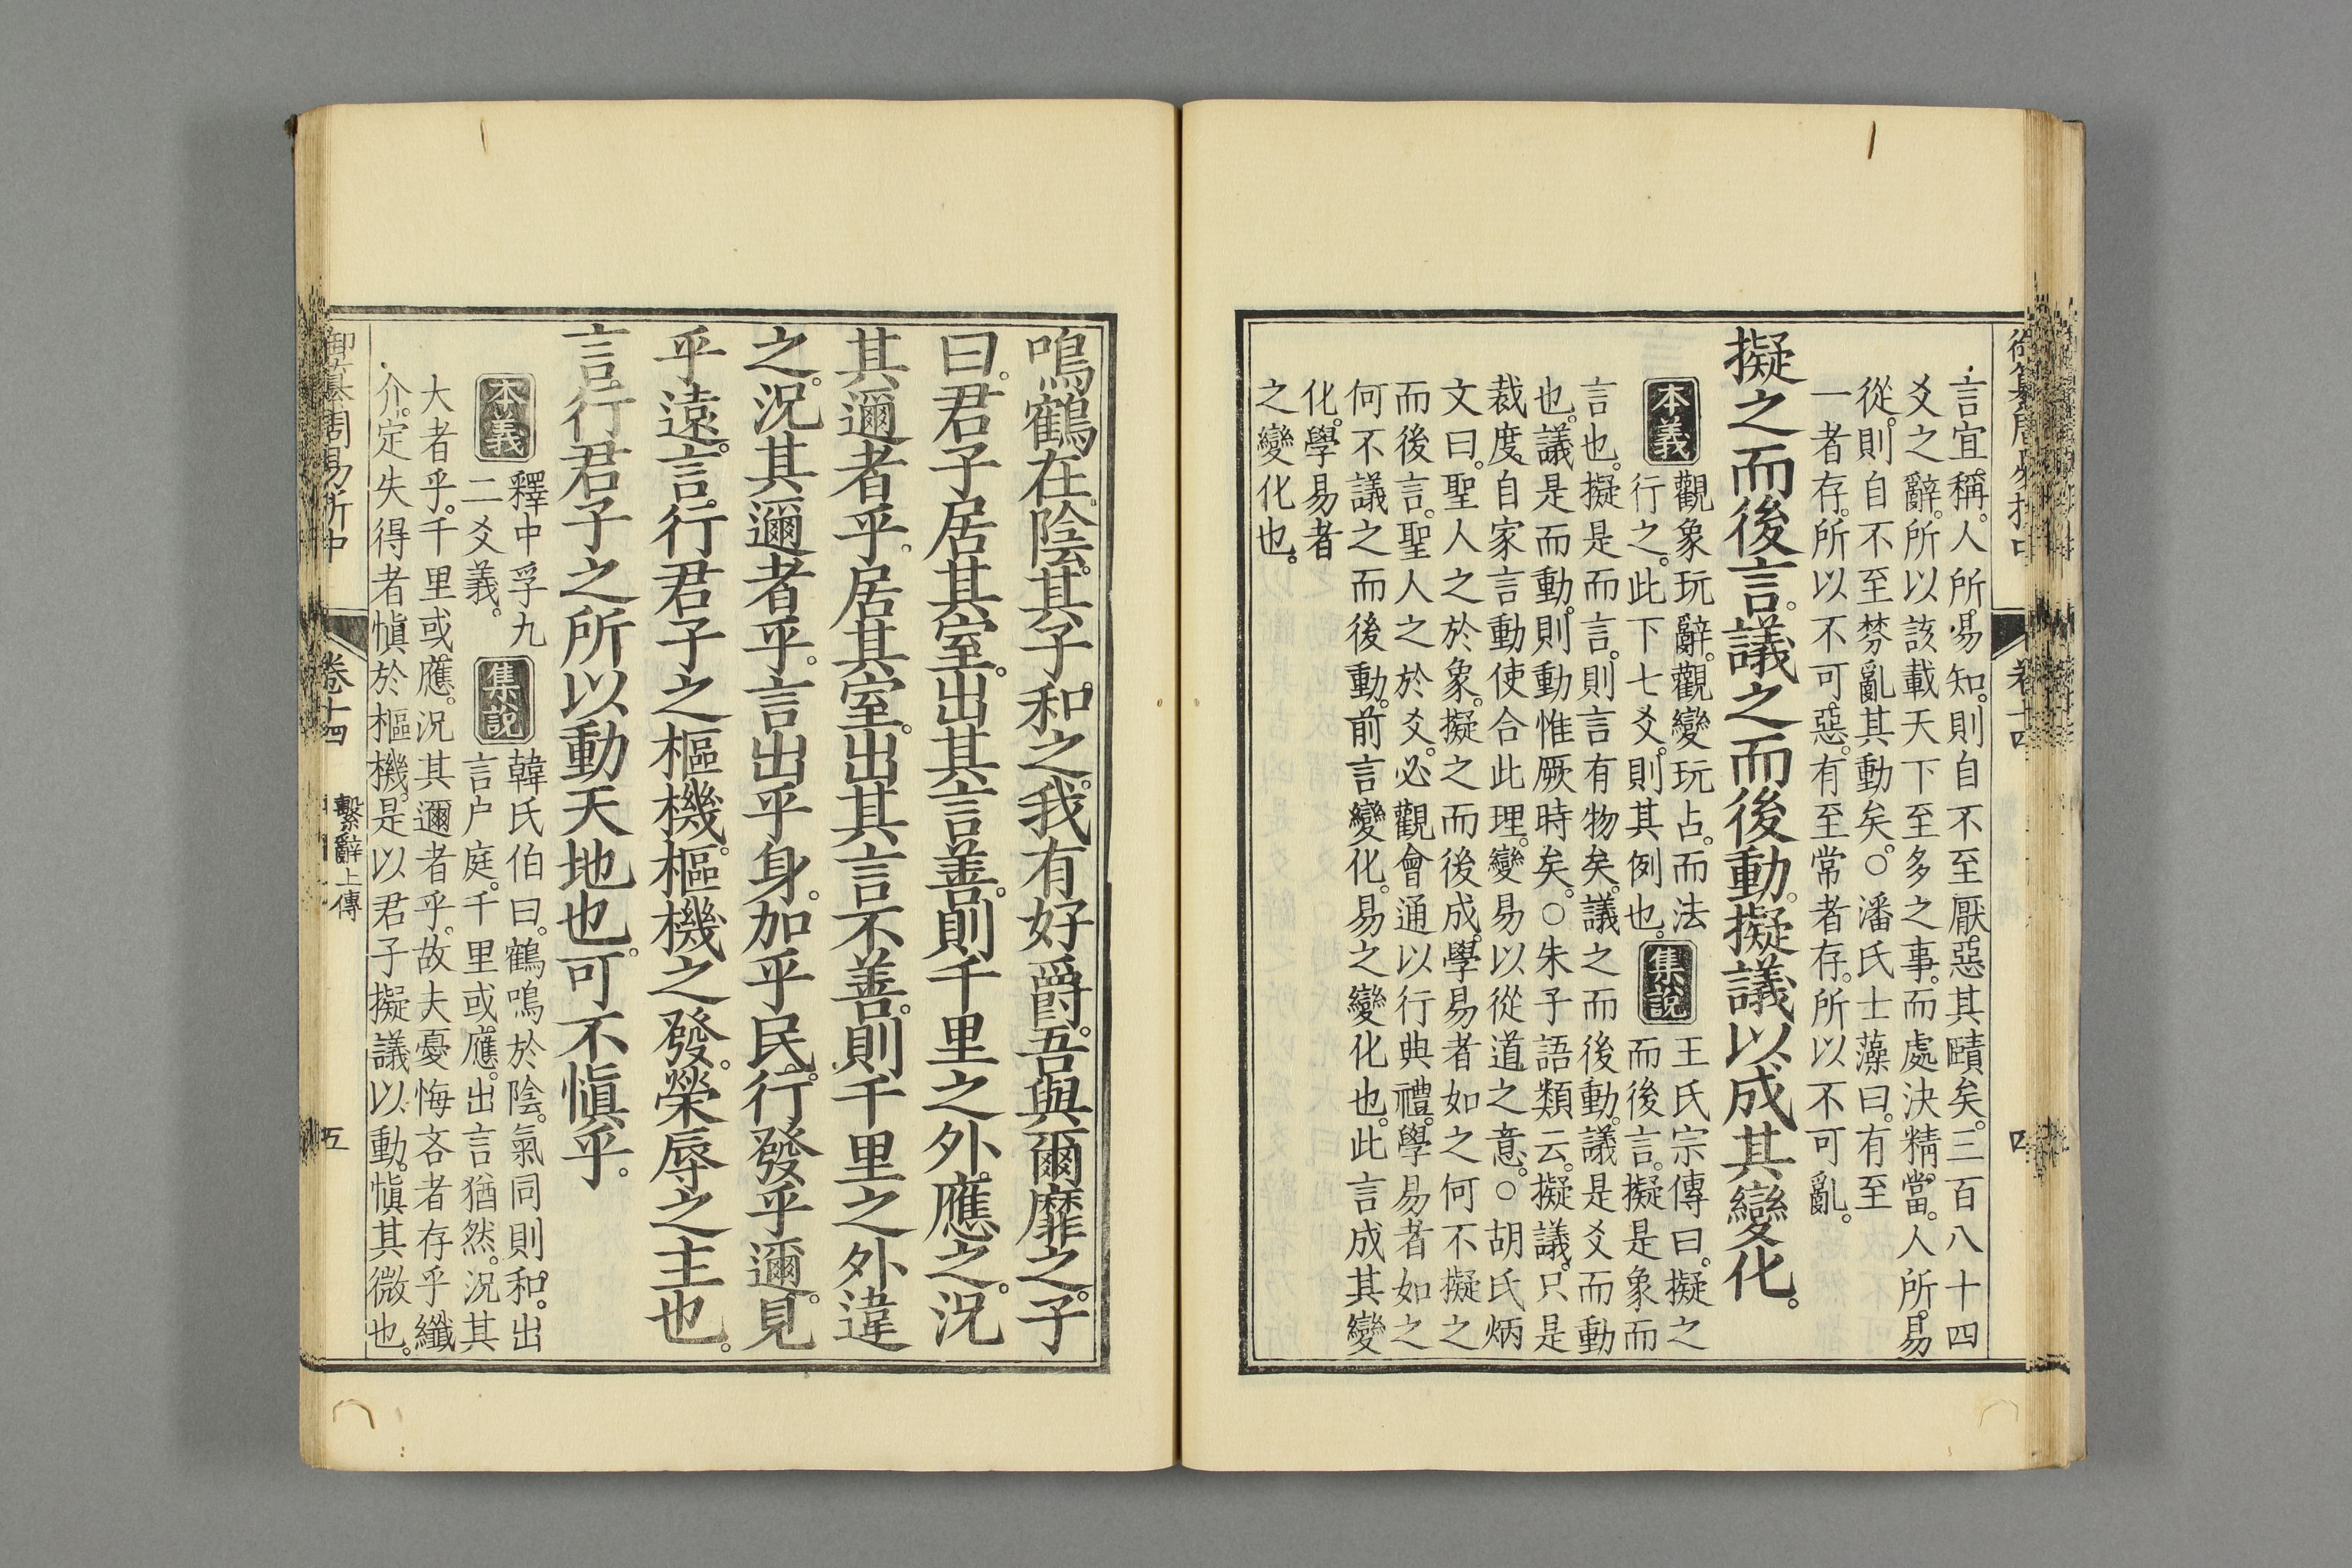 言宜稱。人所易知。則自不至厭惡其賾矣。三百八十四
爻之辭。所以該載天下至多之事。而處決精當。人所易
從。則自不至棼亂其動矣。○潘氏士藻曰。有至
一者存。所以不可惡。有至常者存。所以不可亂。
擬之而後言。議之而後動。擬議以成其變化。
本義
觀象玩辭。觀變玩占。而法
行之。此下七爻。則其例也。
集說
王氏宗傳曰。擬之
而後言。擬是象而
言也。擬是而言。則言有物矣。議之而後動。議是爻而動
也。議是而動。則動惟厥時矣。○朱子語類云。擬議。只是
裁度。自家言動使合此理。變易以從道之意。○胡氏炳
文曰。聖人之於象。擬之而後成。學易者如之何不擬之
而後言。聖人之於爻。必觀會通以行典禮。學易者如之
何不議之而後動。前言變化。易之變化也。此言成其變
化。學易者
之變化也。
卷十四
四
鳴鶴在陰。其子和之。我有好爵。吾與爾靡之。子
曰。君子居其室。出其言善。則千里之外。應之。況
其邇者乎。居其室。出其言不善。則千里之外違
之。況其邇者乎。言出乎身。加乎民。行發乎邇。見
乎遠。言行君子之樞機。樞機之發。榮辱之主也。
言行君子之所以動天地也。可不愼乎。
本義
釋中孚九
二爻義。
集說
韓氏伯曰。鶴鳴於陰。氣同則和。出
言户庭。千里或應。出言猶然。況其
大者乎。千里或應。況其邇者乎。故夫憂悔吝者存乎纖
介。定失得者愼於樞機。是以君子擬議以動。愼其微也。
御纂周易折中
卷十四
繫辭上傳
五